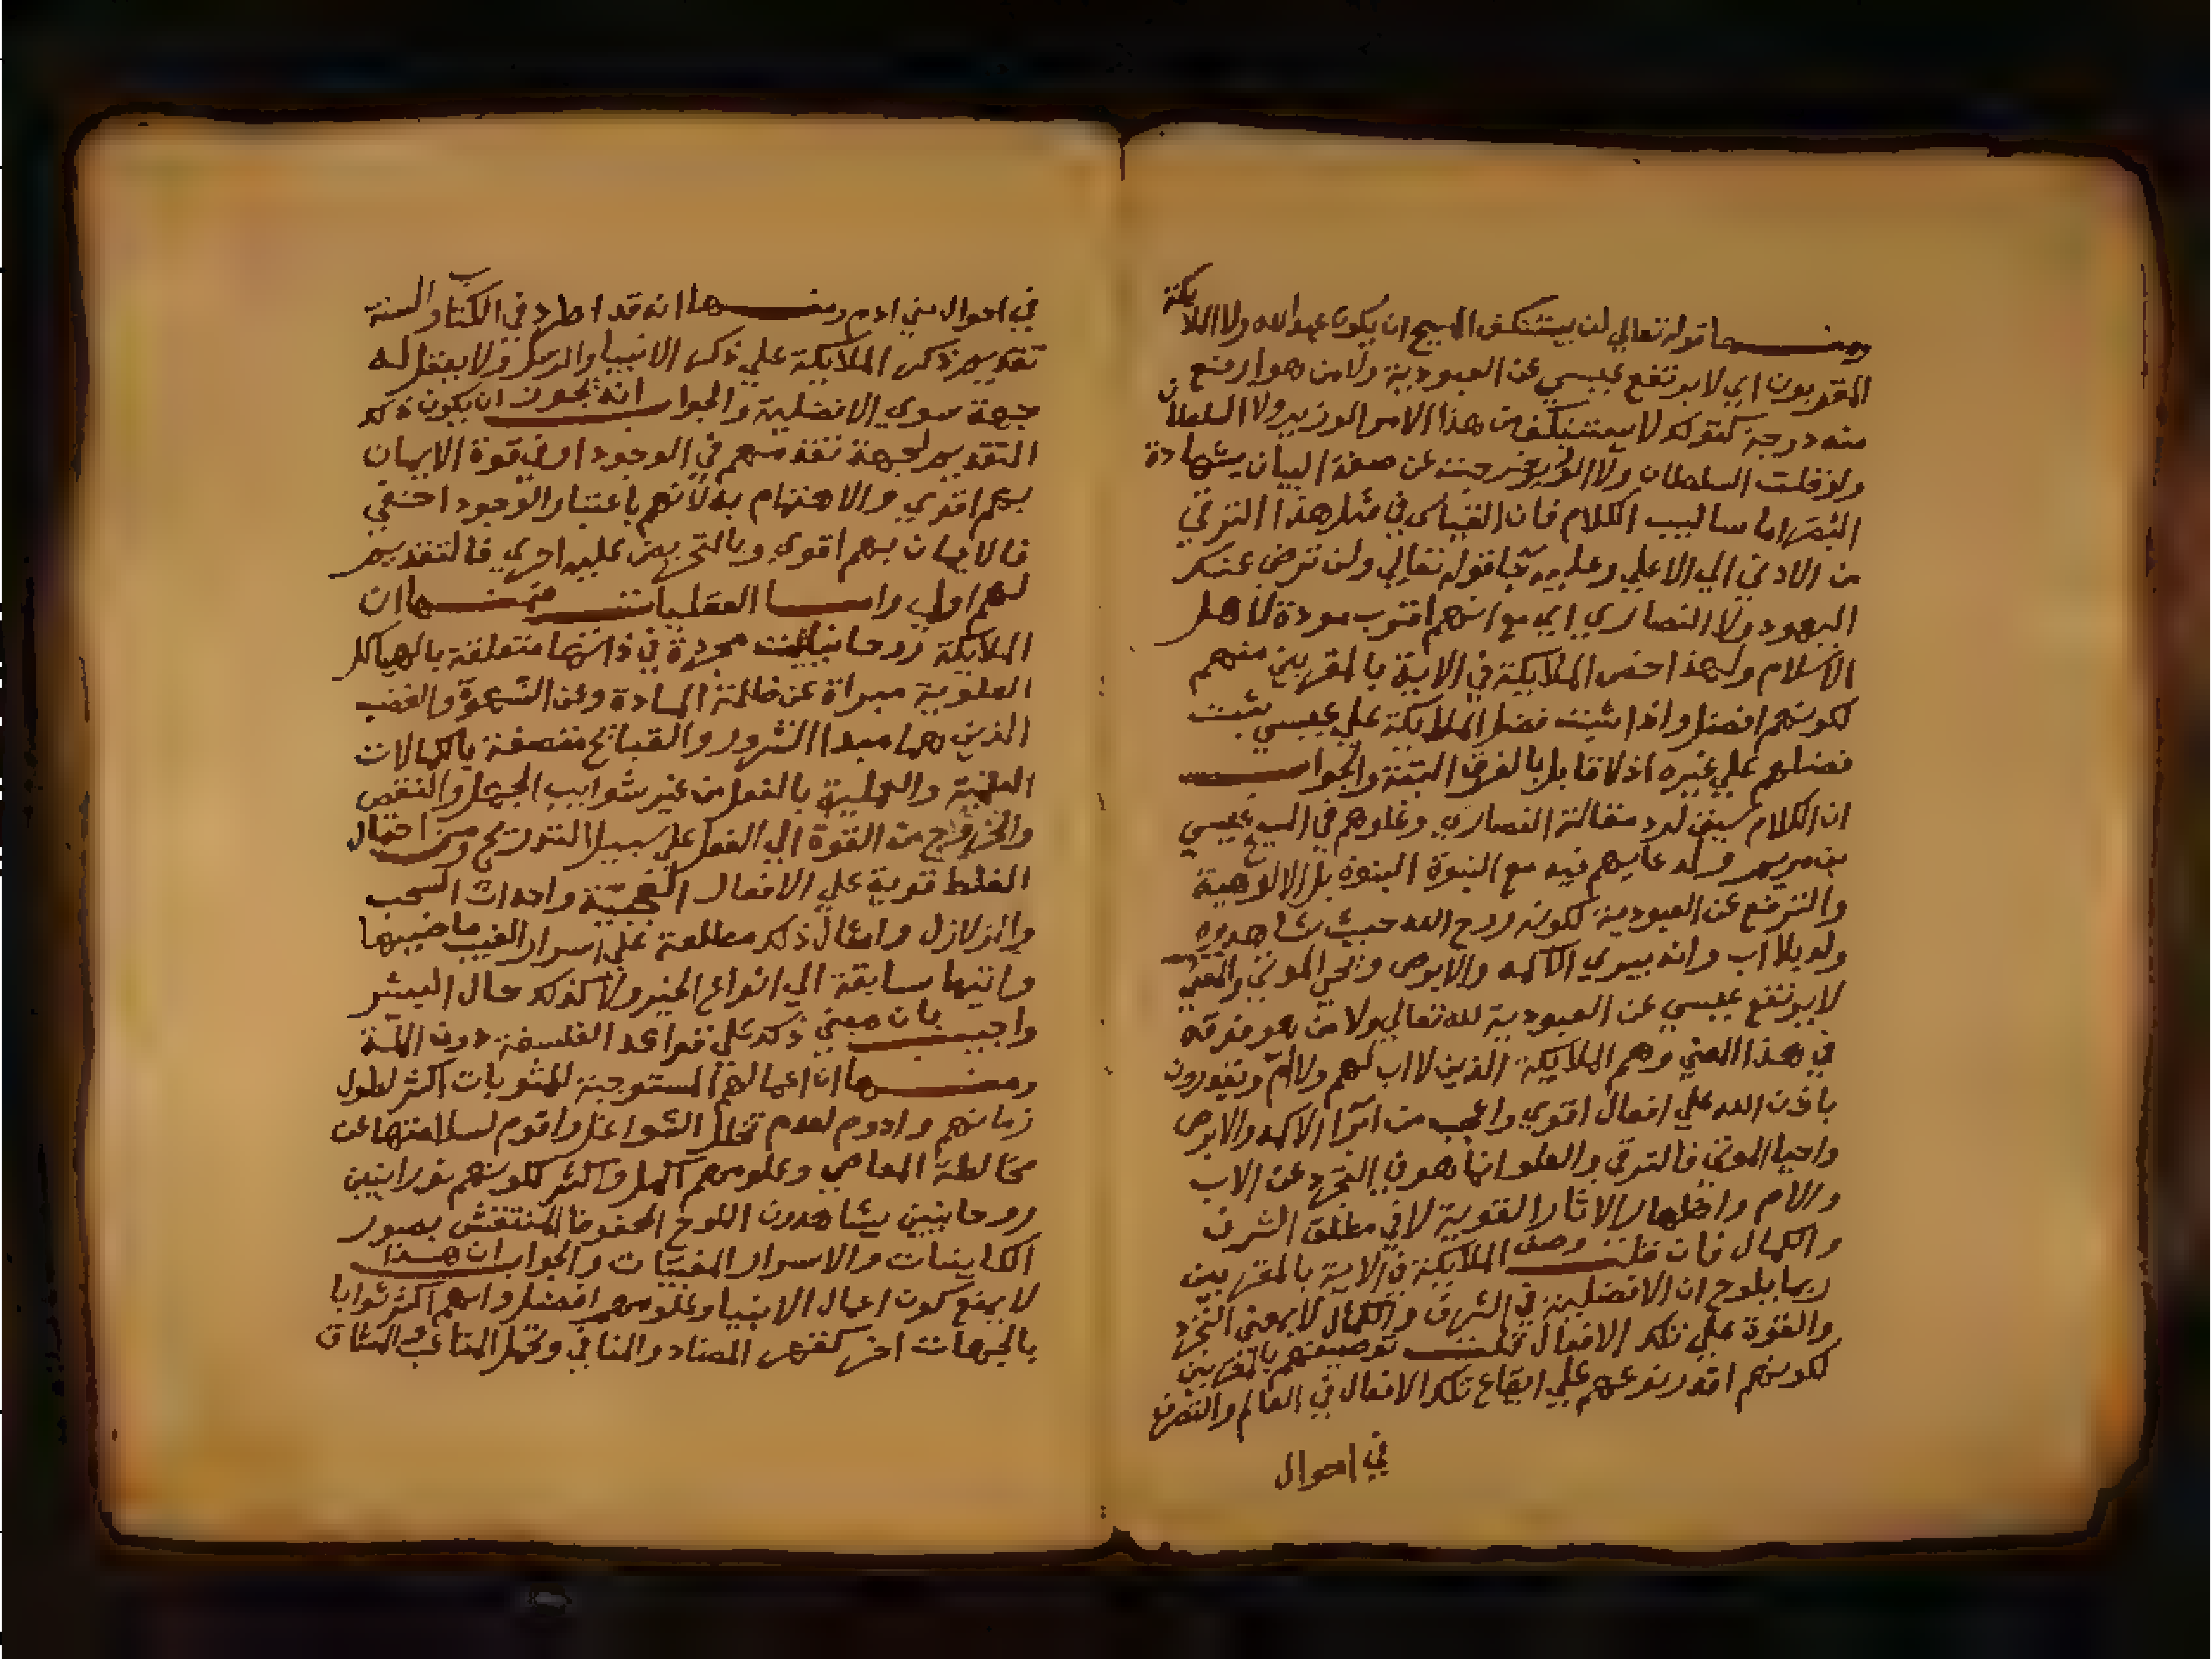 ومنها قوله تعالي لن يستنكف المسيح ان يكون عبدا لله ولا الملايكة
المقربون اي لا يرتفع عيسي عن العبودية ولا من هو ارفع
منه درجة كقولك لا يستنكف من هذا الامر الوزير ولا السلطان
ولو قلت السلطان ولا الوزير خرجت عن صفة البيان بشهادة
البصرا باساليب الكلام فان القياس في مثل هذا الترقي
من الادني الي الاعلي وعليه قوله تعالي ولن ترضي عنك
اليهود ولا النصاري اي مع انهم اقرب مودة لاهل
الاسلام ولهذا خص الملايكة في الاية بالمقربين منهم
لكونهم افضل واذا ثبت فضل الملايكة علي عيسي ثبت
فضلهم علي غيره اذ لا قايل بالفرق البتة والجواب
ان الكلام سيق لرد مقالة النصاري وغلوهم في المسيح عيسي
بن مريم وادعايهم فيه مع النبوة البنوة بل الالوهية
والترفع عن العبودية لكونه روح الله حيث شاهدوه
ولد بلا اب وانه يبري الاكمه والابرص ويحي الموتي والمعني
لا يرتفع عيسي عن العبودية لله تعالي ولا من هو فوقه
في هذا المعني وهم الملايكة الذين لا اب لهم ولا ام ويقدرون
باذن الله علي افعال اقوي واعجب من ابرا الاكمه والابرص
واحيا الموتي فالترقي والعلو انما هو في التجرد عن الاب
والام واظهار الاثار القوية لا في مطلق الشرف
والكمال فان قلت وصف الملايكة في الاية بالمقربين
ربما يلوح ان الافضلية في الشرف والكمال لا بمعني التجرد
والقوة علي تلك الافعال قلت توصيفهم بالمقربين
لكونهم اقدر نوعهم علي ايقاع تلك الافعال في العالم والتصرف
في احوال
في احوال بني ادم ومنها انه قد اطرد في الكتاب والسنة
تقديم ذكر الملايكة علي ذكر الانبيا والرسل ولا يعقل له
جهة سوي الافضلية والجواب انه يجوز ان يكون ذلك
التقديم لجهة تقدمهم في الوجود او في قوة الايمان
بهم اقوي والاهتمام به لانهم باعتبار الوجود اخفي
فالايمان بهم اقوي وبالتحريض عليه احري فالتقديم
لهم اولي واما العقليات فمنها ان
الملايكة روحانيات مجردة في ذاتها متعلقة بالهياكل
العلوية مبراة عن ظلمة المادة وعن الشهوة والغضب
الذين هما مبدا الشرور والقبائح متصفة بالكمالات
العلمية والعملية بالفعل من غير شوايب الجهل والنقص
والخروج من القوة الي الفعل علي سبيل التدريج ومن احتمال
الغلط قوية علي الافعال العجيبة واحداث السحب
والزلازل وامثال ذلك مطلعة علي اسرار الغيب ماضيها
واتيها سابقة الي انواع الخير ولا كذلك حال البشر
واجيب بان مبني ذلك علي قواعد الفلسفة دون الملة
ومنها ان اعمالهم المستوجبة للمثوبات اكثر لطول
زمانهم وادوم لعدم تخلل الشواغل واقوم لسلامتها عن
مخالطة المعاصي وعلومهم اكمل واكثر لكونهم نورانيين
روحانيين يشاهدون اللوح المحفوظ المنتقش بصور
الكاينات والاسرار المغيبات والجواب ان هذا
لا يمنع كون اعمال الانبيا وعلومهم افضل وانهم اكثر ثوابا
بالجهات اخر كقهر المضاد والمنافي وتحمل المتاعب والمشاق